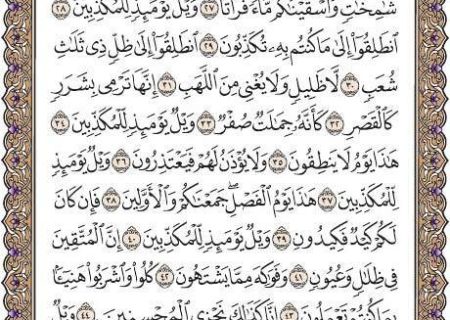 شَٰمِخَٰتٍ وَأَسْقَيْنَٰكُم مَّآءً فُرَاتًا ٢٧ وَيْلٌ يَوْمَئِذٍ لِّلْمُكَذِّبِينَ ٢٨
ٱنطَلِقُوٓا۟ إِلَىٰ مَا كُنتُم بِهِۦ تُكَذِّبُونَ ٢٩ ٱنطَلِقُوٓا۟ إِلَىٰ ظِلٍّ ذِى ثَلَٰثِ
شُعَبٍ ٣٠ لَّا ظَلِيلٍ وَلَا يُغْنِى مِنَ ٱللَّهَبِ ٣١ إِنَّهَا تَرْمِى بِشَرَرٍ
كَٱلْقَصْرِ ٣٢ كَأَنَّهُۥ جِمَٰلَتٌ صُفْرٌ ٣٣ وَيْلٌ يَوْمَئِذٍ لِّلْمُكَذِّبِينَ ٣٤
هَٰذَا يَوْمُ لَا يَنطِقُونَ ٣٥ وَلَا يُؤْذَنُ لَهُمْ فَيَعْتَذِرُونَ ٣٦ وَيْلٌ يَوْمَئِذٍ
لِّلْمُكَذِّبِينَ ٣٧ هَٰذَا يَوْمُ ٱلْفَصْلِ ۖ جَمَعْنَٰكُمْ وَٱلْأَوَّلِينَ ٣٨ فَإِن كَانَ
لَكُمْ كَيْدٌ فَكِيدُونِ ٣٩ وَيْلٌ يَوْمَئِذٍ لِّلْمُكَذِّبِينَ ٤٠ إِنَّ ٱلْمُتَّقِينَ
فِى ظِلَٰلٍ وَعُيُونٍ ٤١ وَفَوَٰكِهَ مِمَّا يَشْتَهُونَ ٤٢ كُلُوا۟ وَٱشْرَبُوا۟ هَنِيٓـًٔۢا
بِمَا كُنتُمْ تَعْمَلُونَ ٤٣ إِنَّا كَذَٰلِكَ نَجْزِى ٱلْمُحْسِنِينَ ٤٤ وَيْلٌ